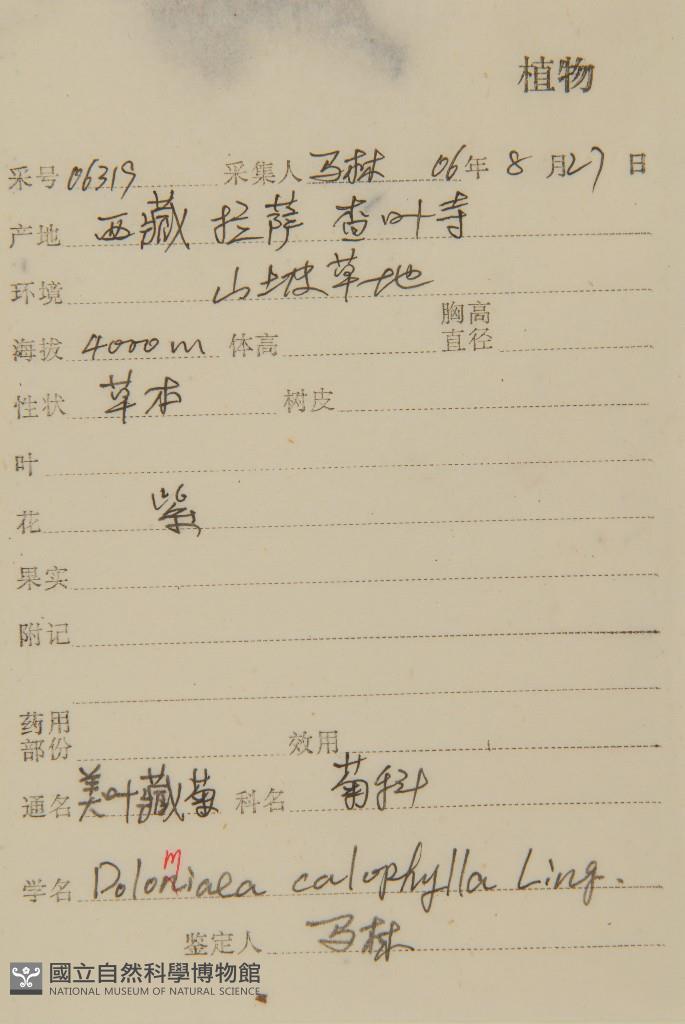 植物
采号 06319 采集人 马林 06年 8 月27 日
产地 西藏 拉萨 查叶寺
环境 山坡草地
海拔 4000m 体高 胸高直径
性状 草本 树皮
叶
花 紫
果实
附记
药用部份 效用
通名 美叶藏菊 科名 菊科
m
学名 Doloniaea calophylla Ling.
鉴定人 马林
國立自然科學博物館
NATIONAL MUSEUM OF NATURAL SCIENCE